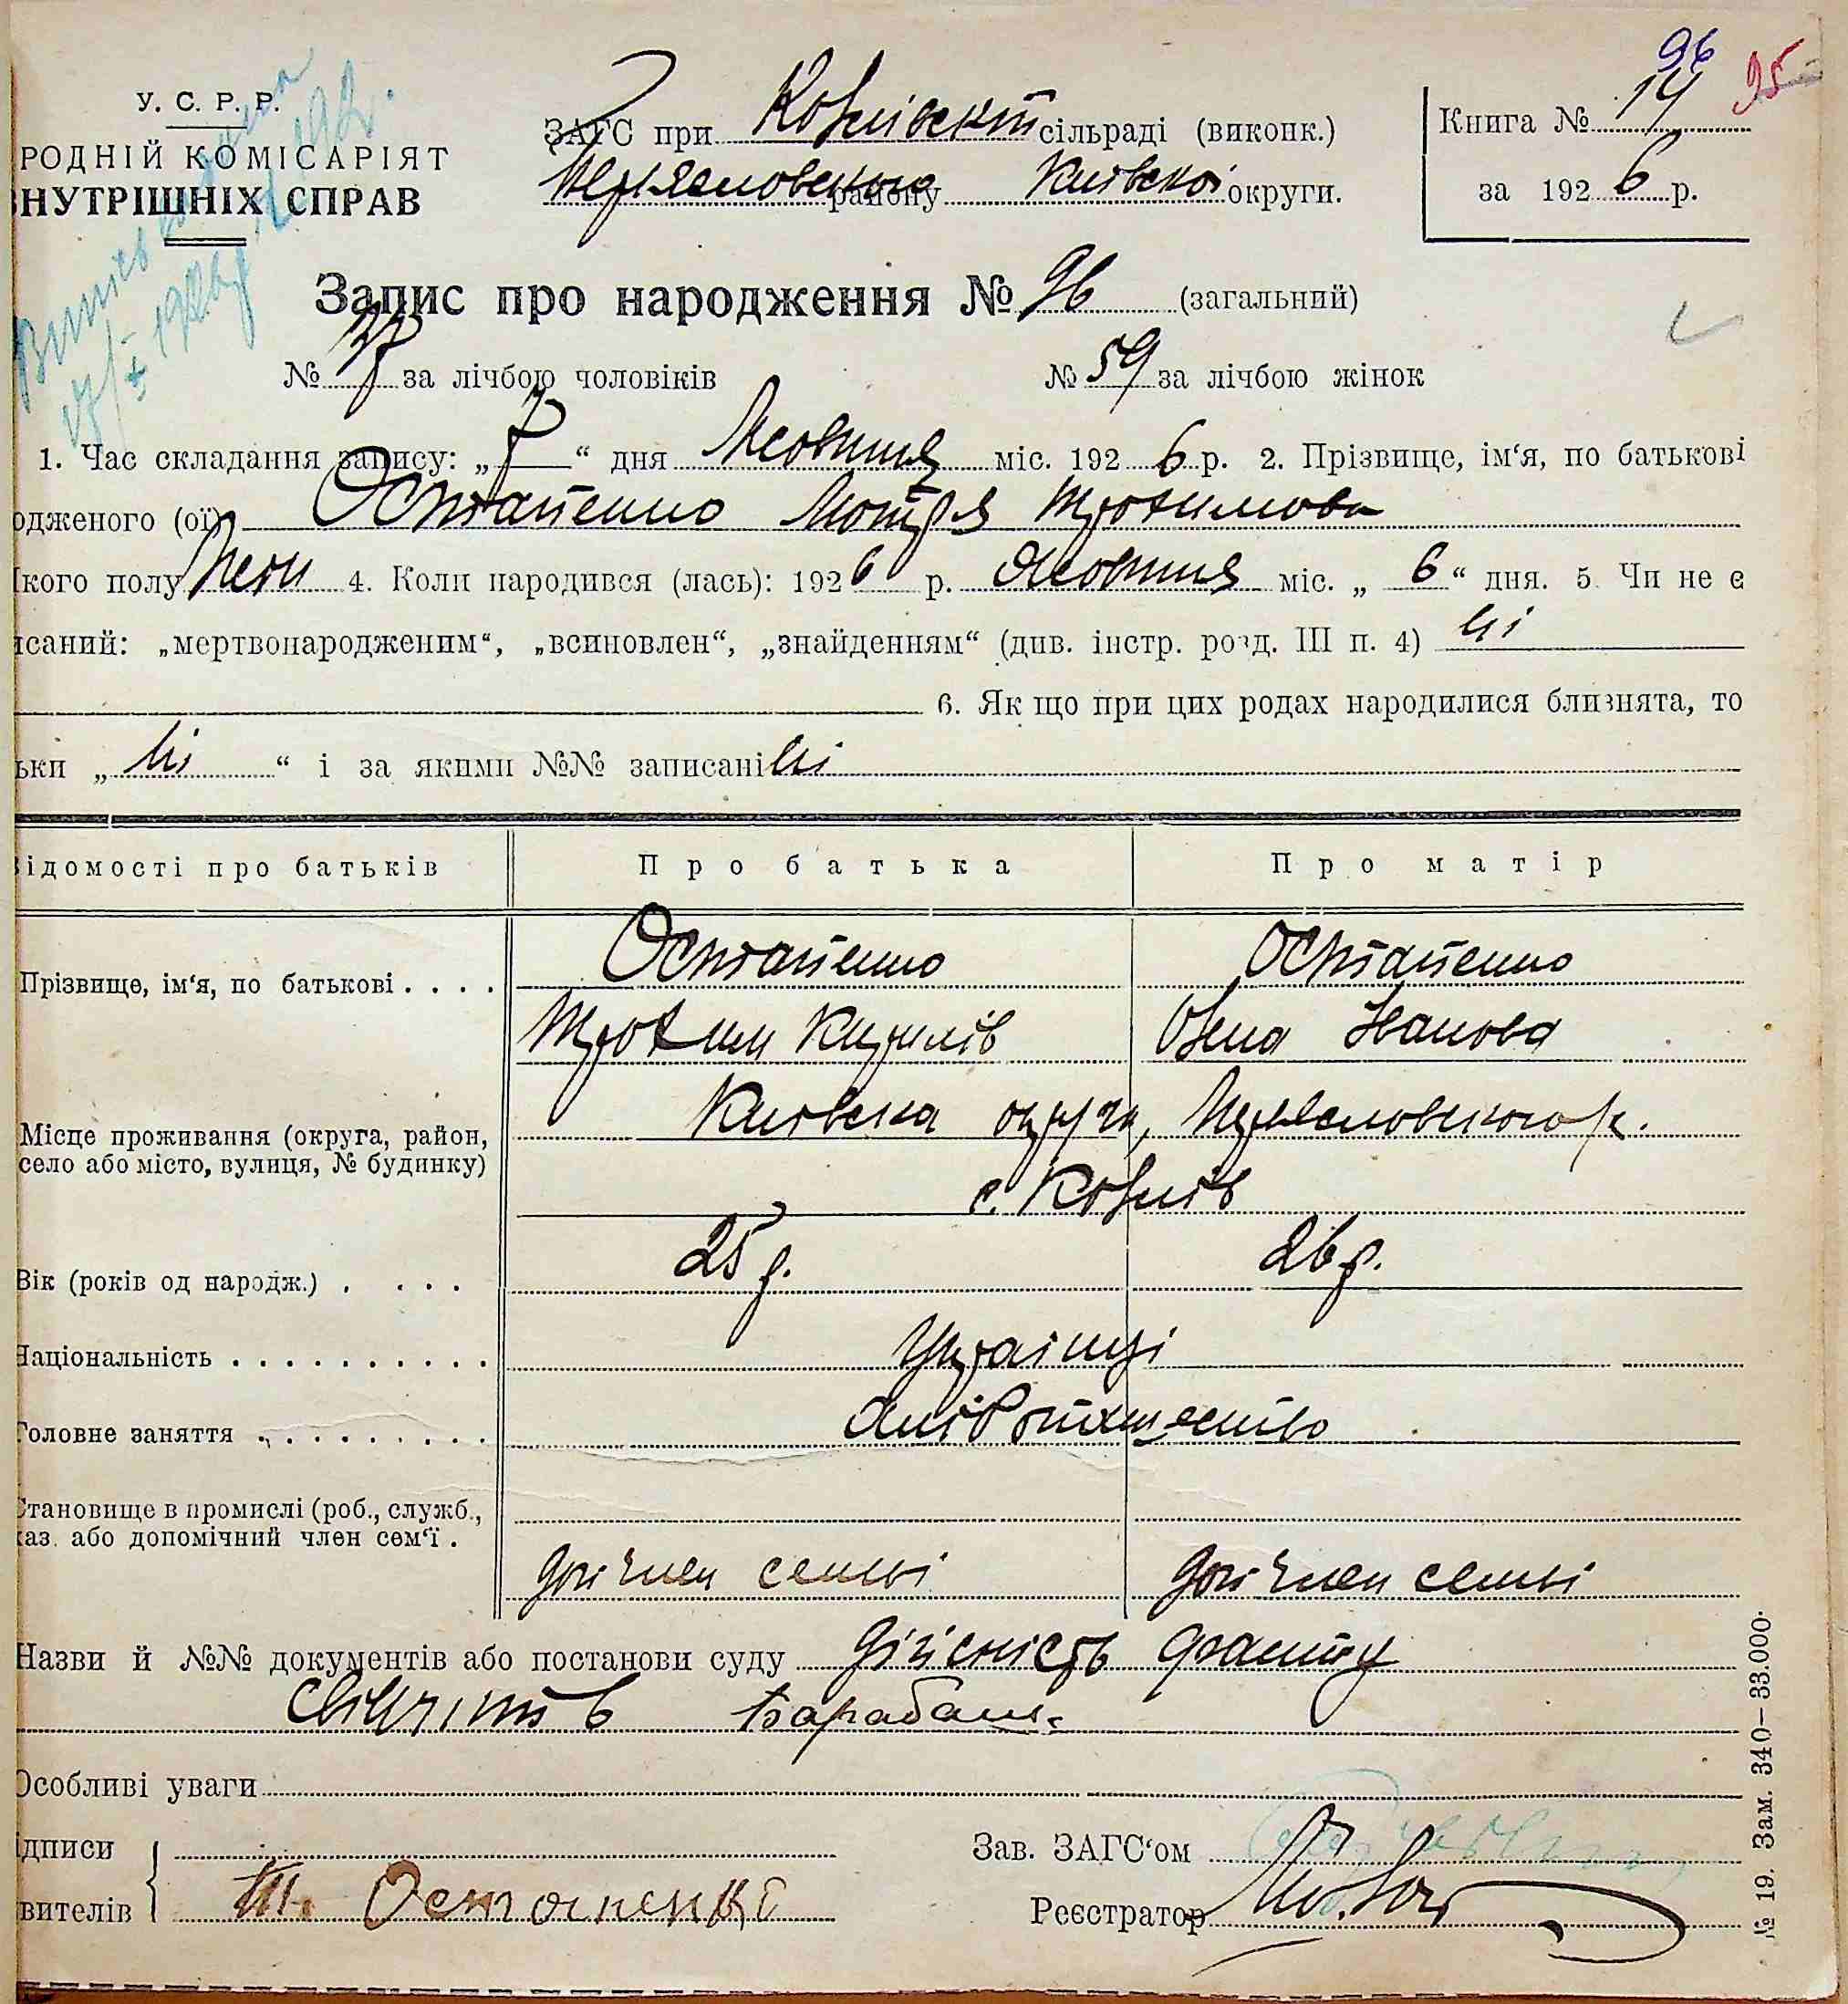 96 95
У. С. Р. Р.
РОДНІЙ КОМІСАРІЯТ
НУТРІШНІХ СПРАВ
ЗАГС при Козлівскій сільраді (виконк.)
Переяславського району Київської округи.
Книга № 14
за 1926 р.
Запис про народження № 96 (загальний)
№ 37 за лічбою чоловіків № 59 за лічбою жінок
1. Час складання запису: „7“ дня Жовтня міс. 1926 р. 2. Прізвище, ім‘я, по батькові
одженого (ої) Остапенко Мотря Трохимова
кого полу жен 4. Коли народився (лась): 1926 р. Жовтня міс. „6“ дня. 5 Чи не є
исаний: „мертвонародженим“, „всиновлен“, „знайденням“ (див. інстр. розд. III п. 4) ні
6. Як що при цих родах народилися близнята, то
ьки „ні“ і за якими №№ записані ні
ідомості про батьків Про батька Про матір
Прізвище, ім‘я, по батькові . . . . Остапенко Остапенко
Трохим Кирилів Іванова
Місце проживання (округа, район, село або місто, вулиця, № будинку) Київська округи, Переясловского р.
с. Козлів
Вік (років од народж.) . . . . 25 р. 26 р.
Національність . . . . . . . . . . . Українці
Головне заняття . . . . . . . . . . хліборобство
Становище в промислі (роб., служб.,
аз. або допомічний член сем‘ї . доп член семьі доп член семьі
Назви й №№ документів або постанови суду дійсність факту
свідчить Барабаш
Особливі уваги
ідписи
вителів Т. Остапенко
Зав. ЗАГС‘ом
Реєстратор
№ 19. Зам. 340—33.000.